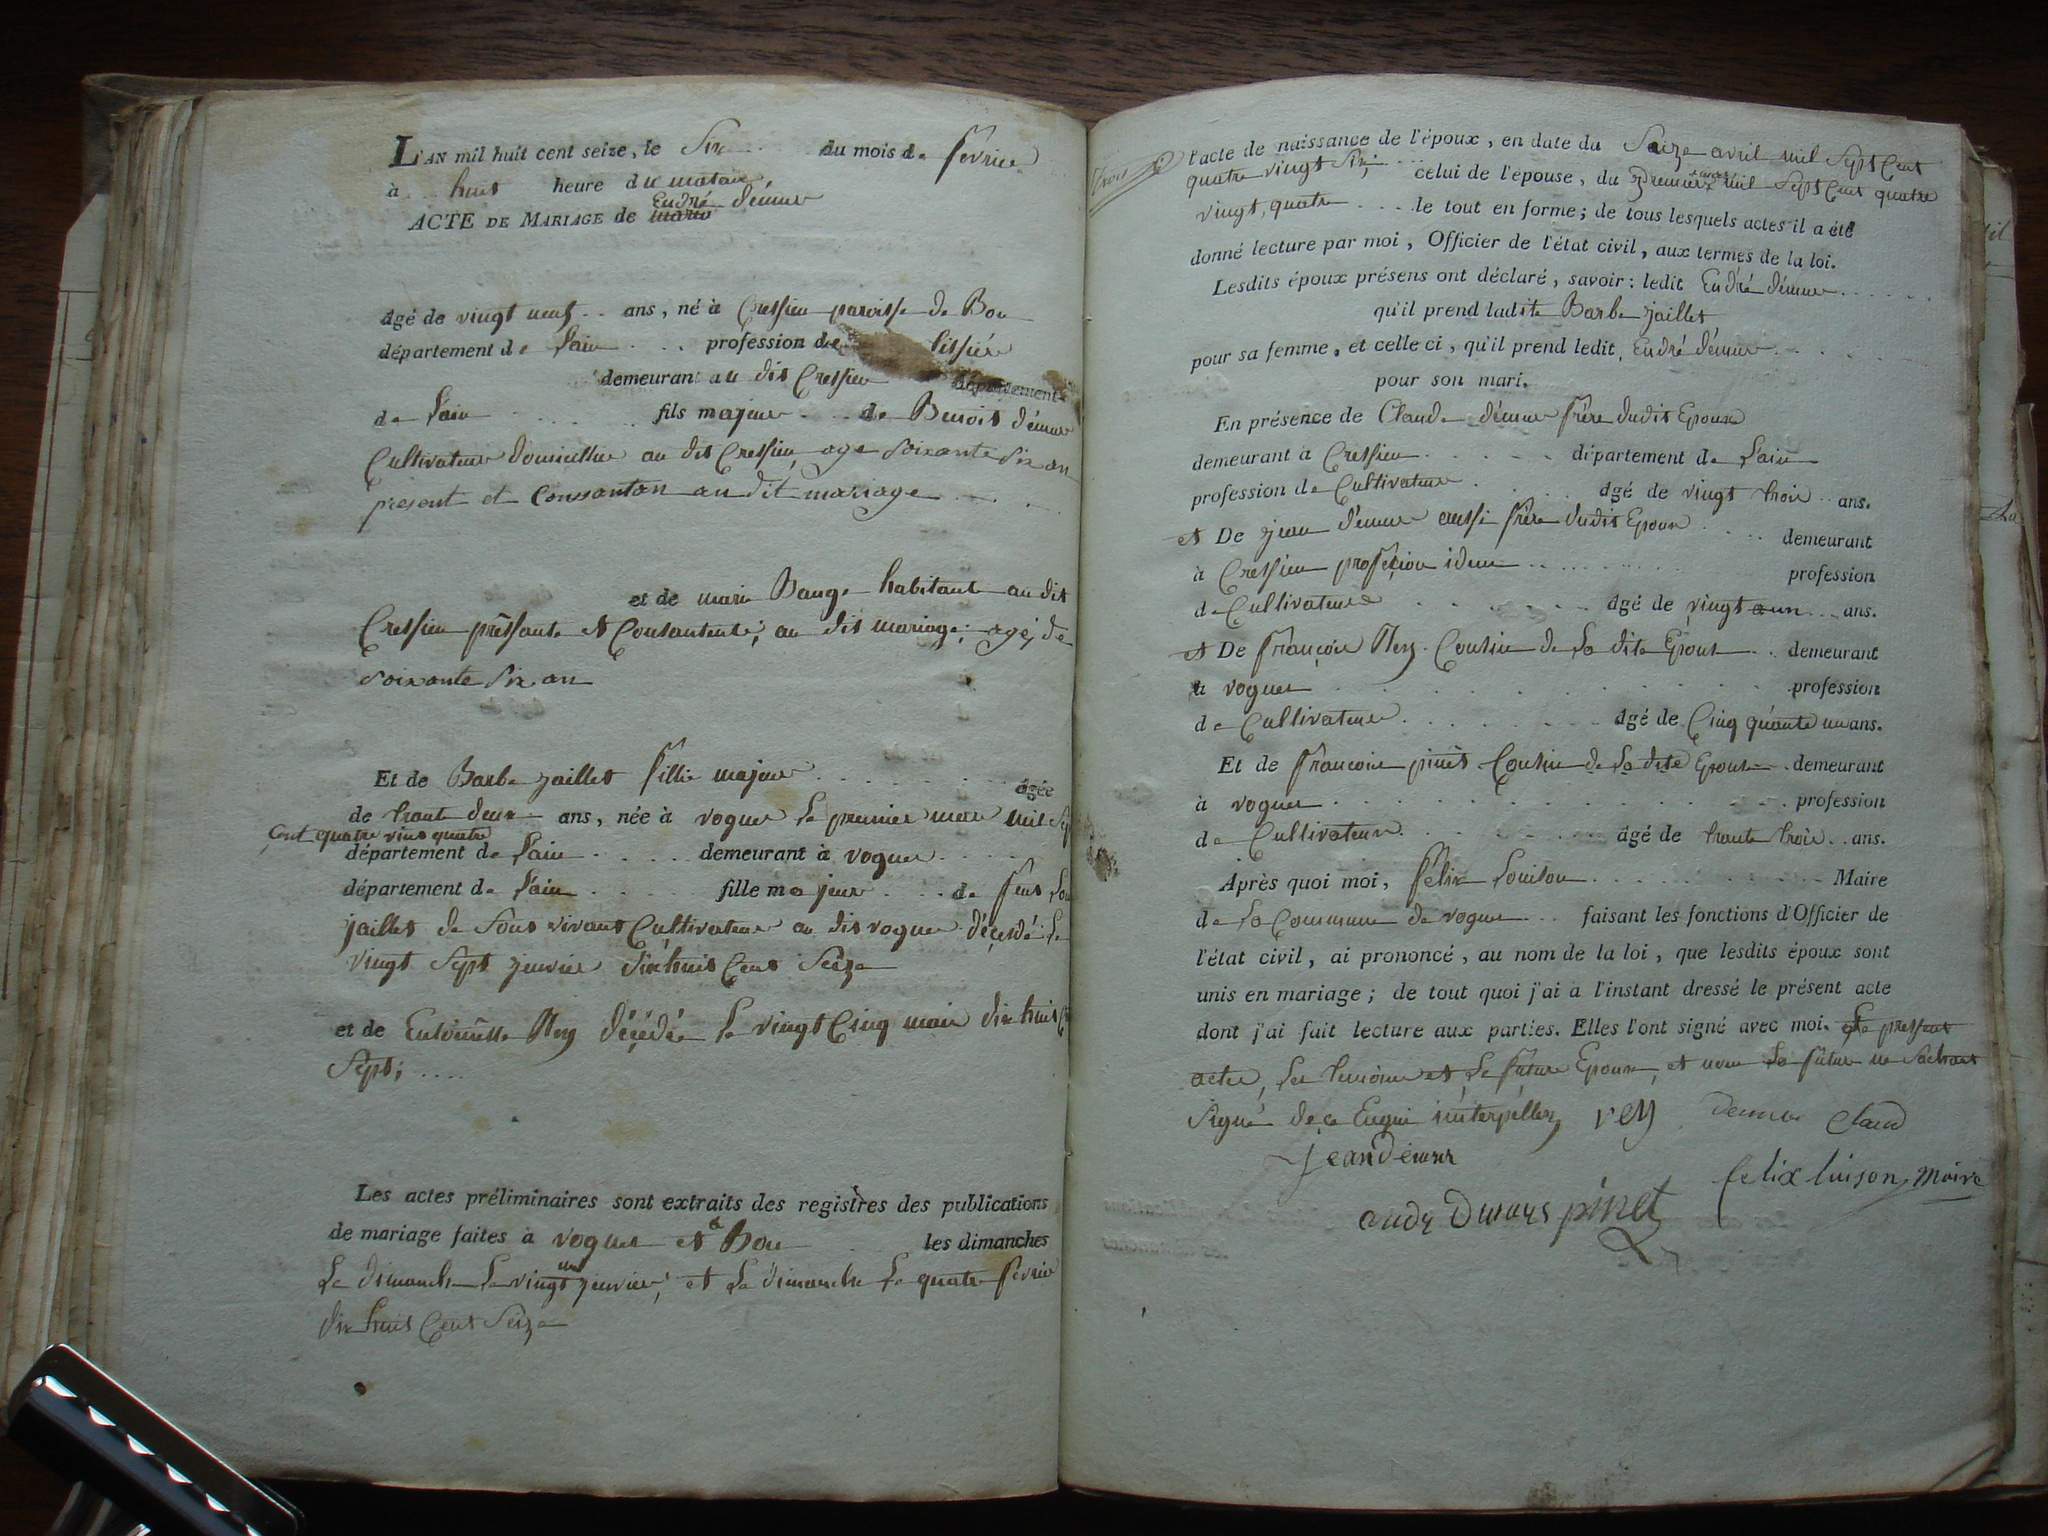 L'AN mil huit cent seize, le Six du mois de fevrier
à huit heure du matain,
ACTE DE MARIAGE de marie André démur
âgé de vingt neuf .. ans, né à Cressieu paroisse de Bou
département de Lain . . . profession de tissier
demeurant au dit Cressieu département
de Lain fils majeur de Benoit démur
Cultivateur domicillier au dit Cressieu age soixante six an
présent et Consantan au dit mariage
et de marie Bauge habitant au dit
Cressieu préssante et Consantente, au dit mariage, agéj de
soixante six an
Et de Barbe jaillet fillie majeur âgée
de trante deux ans, née à vogne Le premier mars mil Sep
Cent quatre vins quatre
département de Lain demeurant à vogne
département de Lain fille majeur de feus Lou
jaillet de Sous vivant Cultivateur au dit vogne décedé Le
vingt Sept jenvier dix huit Cent Seize
et de Entoinette Rey décédée Le vingt Cinq mai dix huit C
Sept; ....
Les actes préliminaires sont extraits des registres des publications
de mariage faites à vogne et à Bou les dimanches
Le dimanche Le vingt un jenvier, et Le dimanche Le quatre fevrier
dix huit Cent Seize
l'acte de naissance de l'époux, en date du Seize avril mil Sept Cent
quatre vingt Six; celui de l'épouse, du premier mars mil Sept Cent quatre
vingt, quatre .... le tout en forme; de tous lesquels actes il a été
donné lecture par moi, Officier de l'état civil, aux termes de la loi.
Lesdits époux présens ont déclaré, savoir: ledit Endré démur
qu'il prend ladite Barbe jaillet
pour sa femme, et celle ci, qu'il prend ledit Endré démur
pour son mari.
En présence de Claude démur frére dudit Epoux
demeurant à Cressieu département de Lain
profession de Cultivateur âgé de vingt trois .. ans.
et De jean démur aussi frére dudit Epoux .... demeurant
à Cressieu profeçion idem profession
de Cultivateur âgé de vingt un ans.
et De françois Rey Cousin de La dite Epouse .. demeurant
à vogne profession
de Cultivateur âgé de Cinq quante un ans.
Et de francois pinet Cousin de La dite Epouse demeurant
à vogne profession
de Cultivateur âgé de trante trois .. ans.
Après quoi moi, félix Louison Maire
de La Commune de vogne ... faisant les fonctions d'Officier de
l'état civil, ai prononcé, au nom de la loi, que lesdits époux sont
unis en mariage; de tout quoi j'ai à l'instant dressé le présent acte
dont j'ai fait lecture aux parties. Elles l'ont signé avec moi. Le pressent
acte, Les temoins et Le futur Epoux, et non La future ne Sachant
Signé de ce Enqui interpéller, rey demur claud
jean démur
felix luison, Maire
andre Dumurs pinet